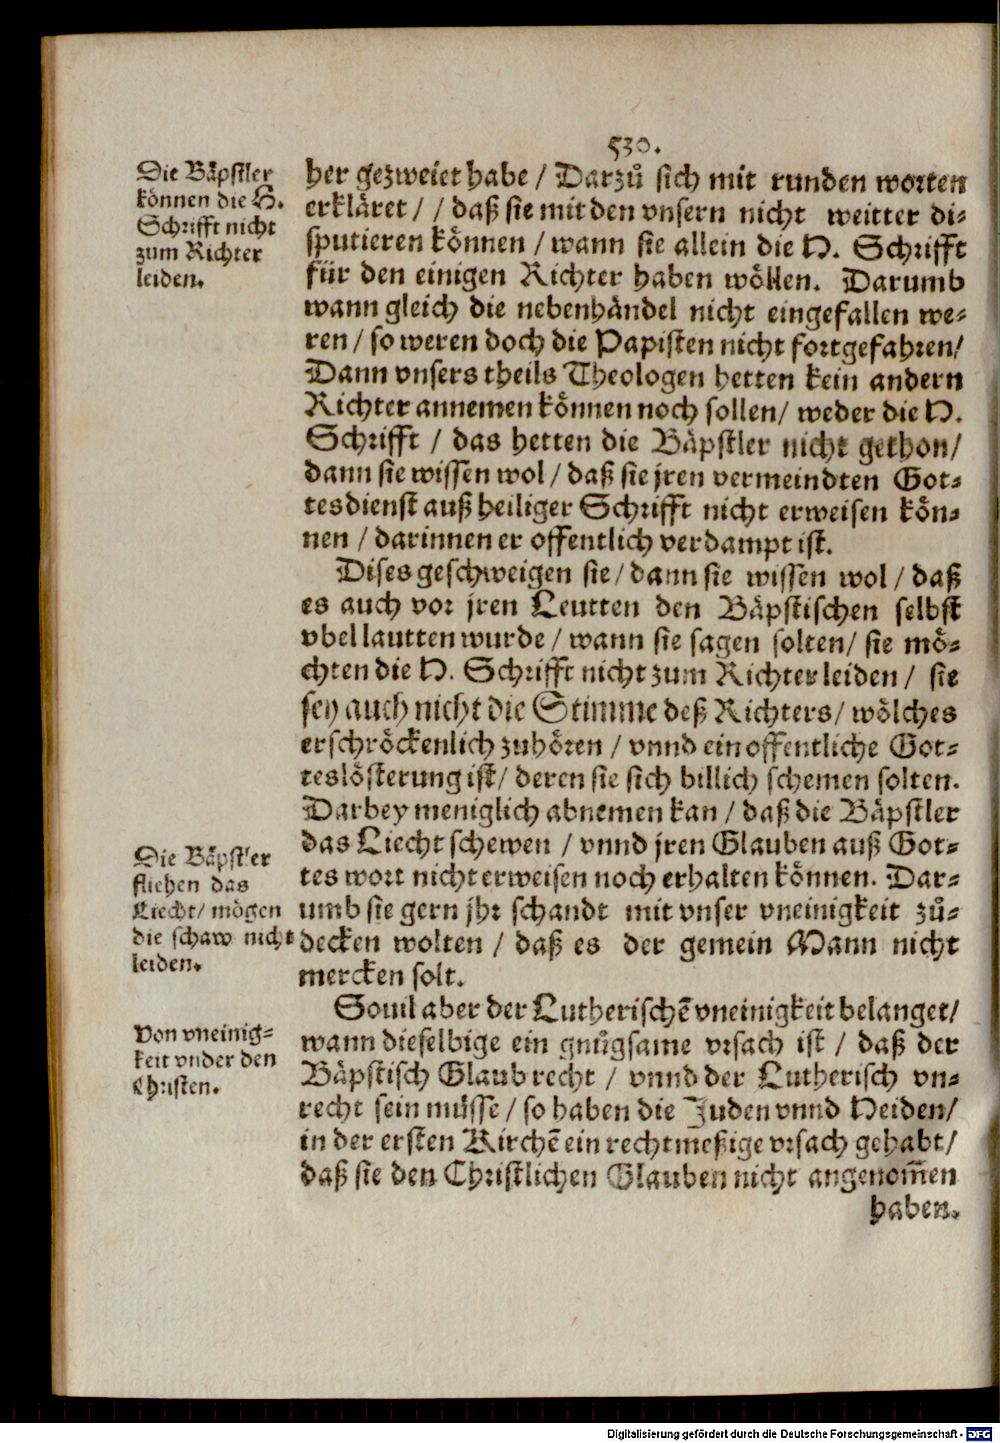 530.
Die Bäpstler
können die H.
Schrifft nicht
zum Richter
leiden.
her gezweiet habe / Darzuͦ sich mit runden worten
erkläret / / daß sie mit den vnsern nicht weitter di-
sputieren können / wann sie allein die H. Schrifft
für den einigen Richter haben wöllen. Darumb
wann gleich die nebenhändel nicht eingefallen we-
ren / so weren doch die Papisten nicht fortgefahren/
Dann vnsers theils Theologen hetten kein andern
Richter annemen können noch sollen/ weder die H.
Schrifft / das hetten die Bäpstler nicht gethon/
dann sie wissen wol / daß sie jren vermeindten Got-
tesdienst auß heiliger Schrifft nicht erweisen kön-
nen / darinnen er offentlich verdampt ist.
Dises geschweigen sie / dann sie wissen wol / daß
es auch vor jren Leutten den Bäpstischen selbst
vbel lautten wurde / wann sie sagen solten/ sie mö-
chten die H. Schrifft nicht zum Richter leiden / sie
sey auch nicht die Stimme deß Richters/ wölches
erschröckenlich zuhören / vnnd ein offentliche Got-
teslösterung ist/ deren sie sich billich schemen solten.
Darbey meniglich abnemen kan / daß die Bäpstler
das Liecht schewen / vnnd jren Glauben auß Got-
tes wort nicht erweisen noch erhalten können. Dar-
umb sie gern jhr schandt mit vnser vneinigkeit zuͦ-
decken wolten / daß es der gemein Mann nicht
mercken solt.
Die Bäpstler
fliehen das
Liecht/ mögen
die schaw nicht
leiden.
Souil aber der Lutherischē vneinigkeit belanget/
wann dieselbige ein gnuͦgsame vrsach ist / daß der
Bäpstisch Glaub recht / vnnd der Lutherisch vn-
recht sein müsse / so haben die Juden vnnd Heiden/
in der ersten Kirchē ein rechtmeßige vrsach gehabt/
daß sie den Christlichen Glauben nicht angenom̄en
haben.
Von vneinig-
keit vnder den
Christen.
Digitalisierung gefördert durch die Deutsche Forschungsgemeinschaft - DFG